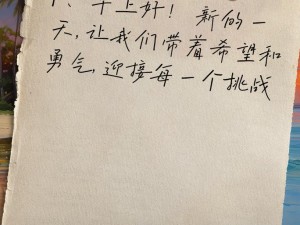 1、早上好！新的一
天,让我们带着希望和
勇气,迎接每一个挑战